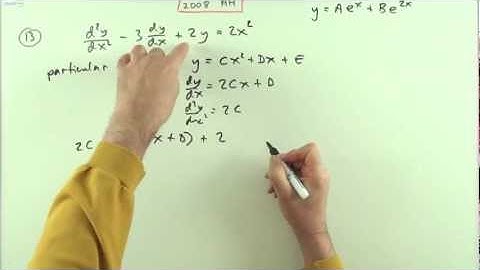 2008 AH
y = Ae^x + Be^2x
13 d²y/dx² - 3 dy/dx + 2y = 2x²
particular y = Cx² + Dx + E
dy/dx = 2Cx + D
d²y/dx² = 2C
2C x + D) + 2